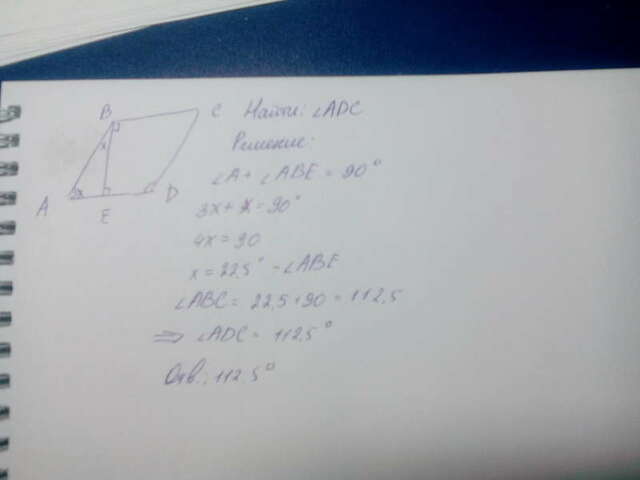 B
C
x
3x
A
E
D
Найти: ∠ADC
Решение:
∠A + ∠ABE = 90°
3x + x = 90°
4x = 90
x = 22,5° - ∠ABE
∠ABC = 22,5 + 90 = 112,5
⇒ ∠ADC = 112,5°
Отв.: 112,5°